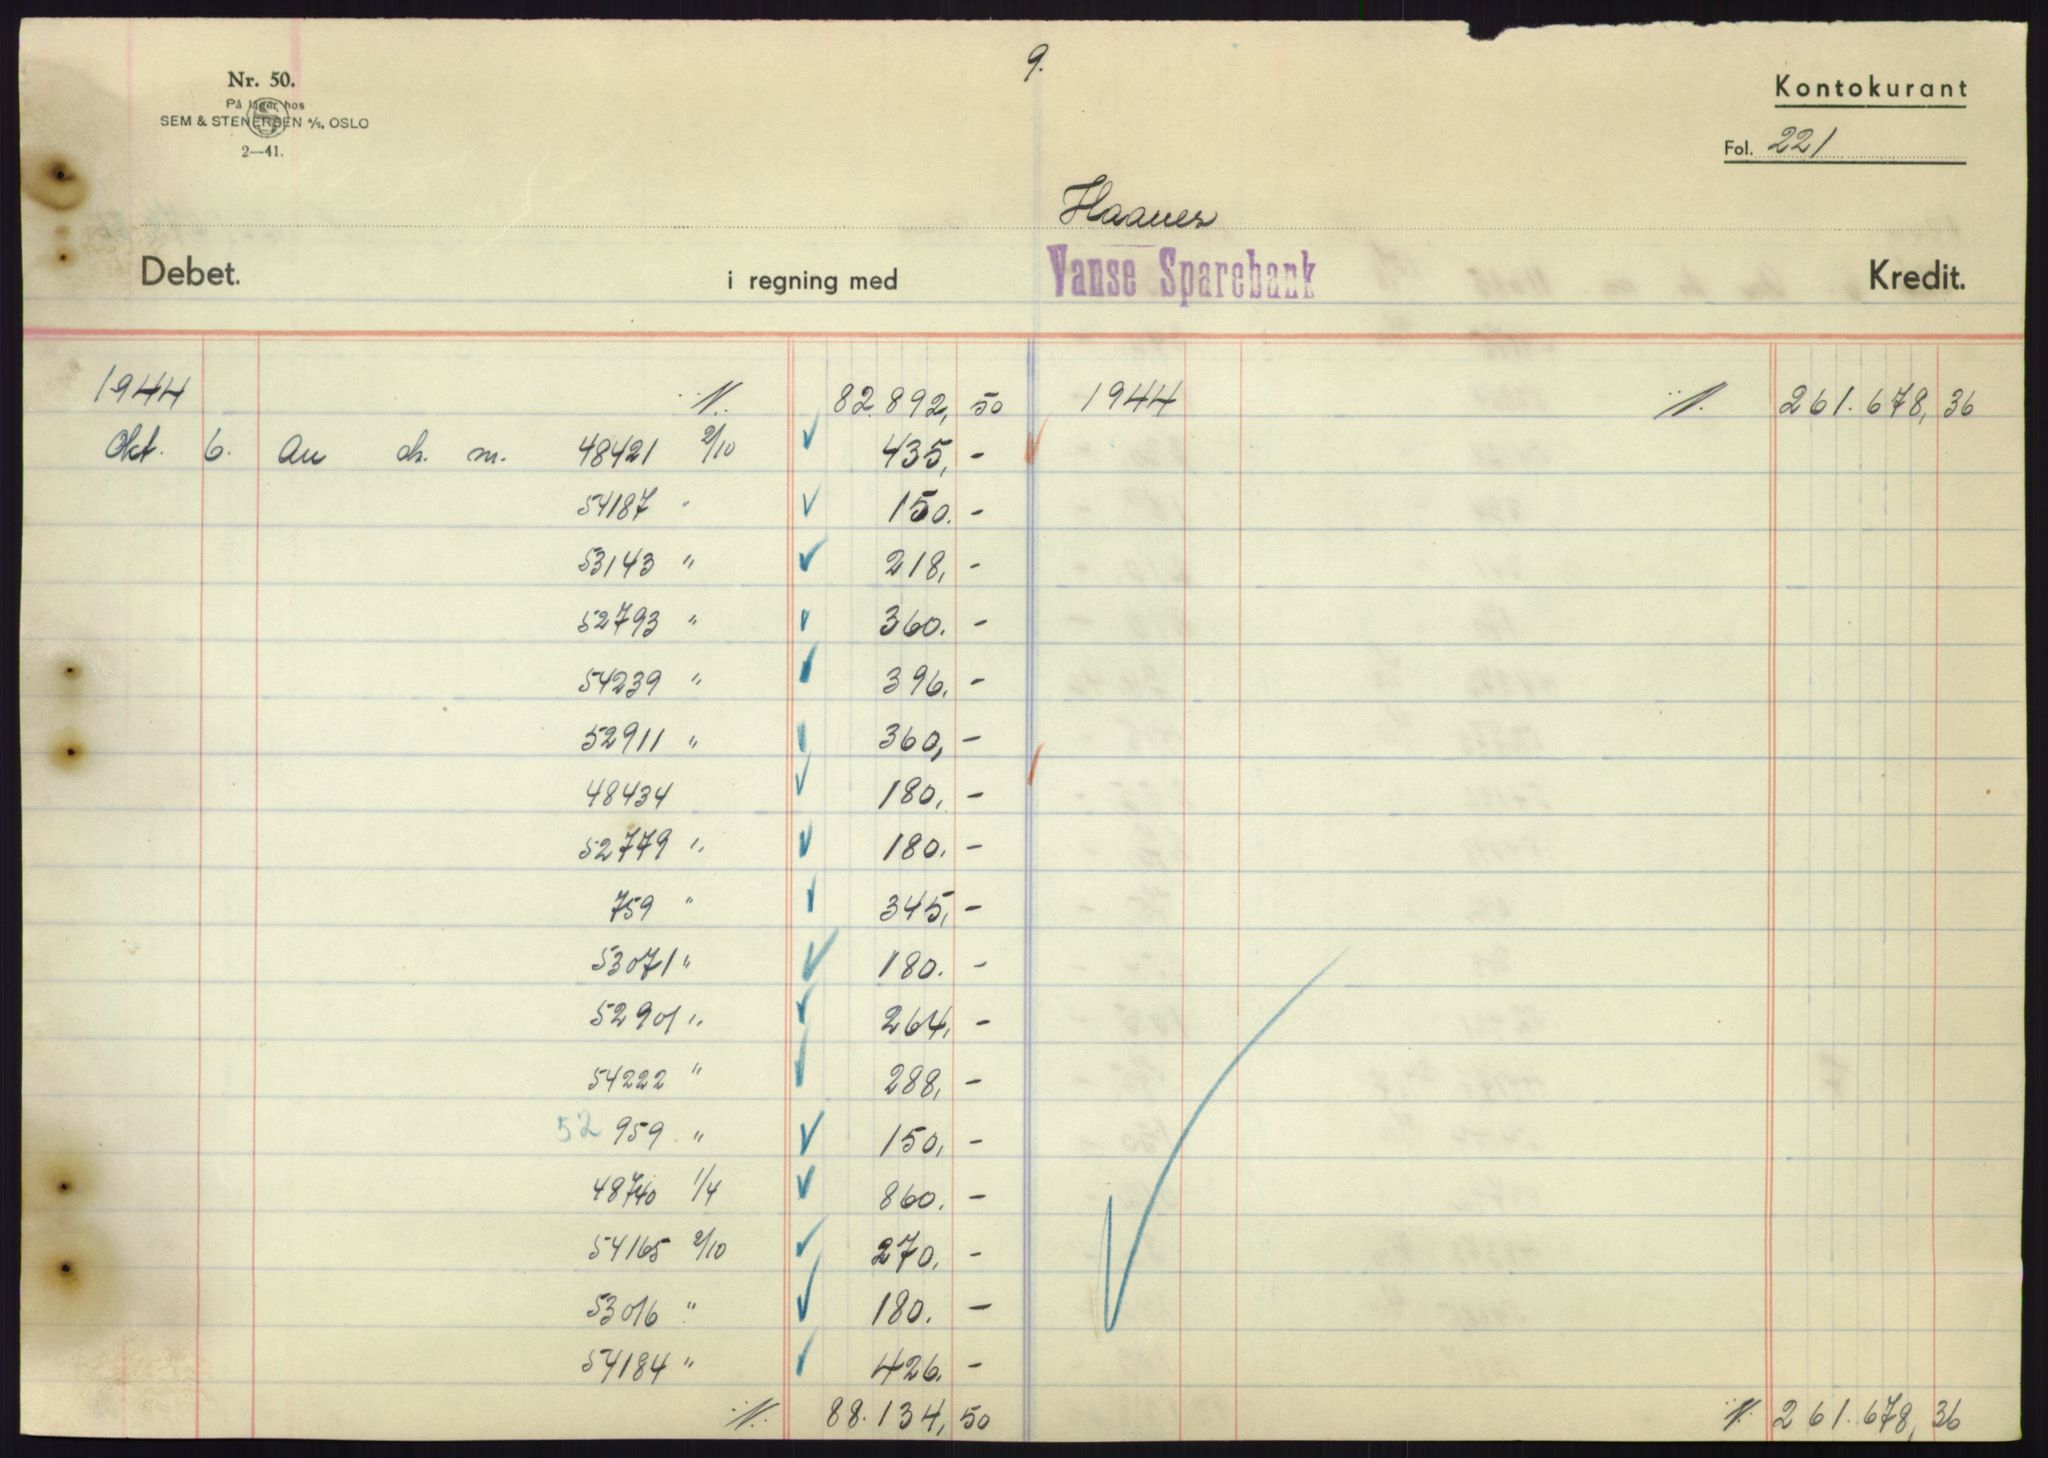 9.
Nr. 50.
På lager hos
SEM & STENERSEN A/S, OSLO
2—41.
Kontokurant
Fol. 221
Haanes
Debet. i regning med Vanse Sparebank Kredit.
1944 82.892,50 1944 261.678,36
Okt. 6. An ch. m. 48421 2/10 435,-
54187 " 150.-
53143 " 218,-
52793 " 360.-
54239 " 396.-
52911 " 360,-
48434 180,-
52779 " 180.-
759 " 345,-
53071 " 180.-
52901 " 264,-
54222 " 288,-
52 959 " 150,-
48740 1/4 860.-
54165 2/10 270,-
53016 " 180.-
54184 " 426.-
88.134,50 261.678,36